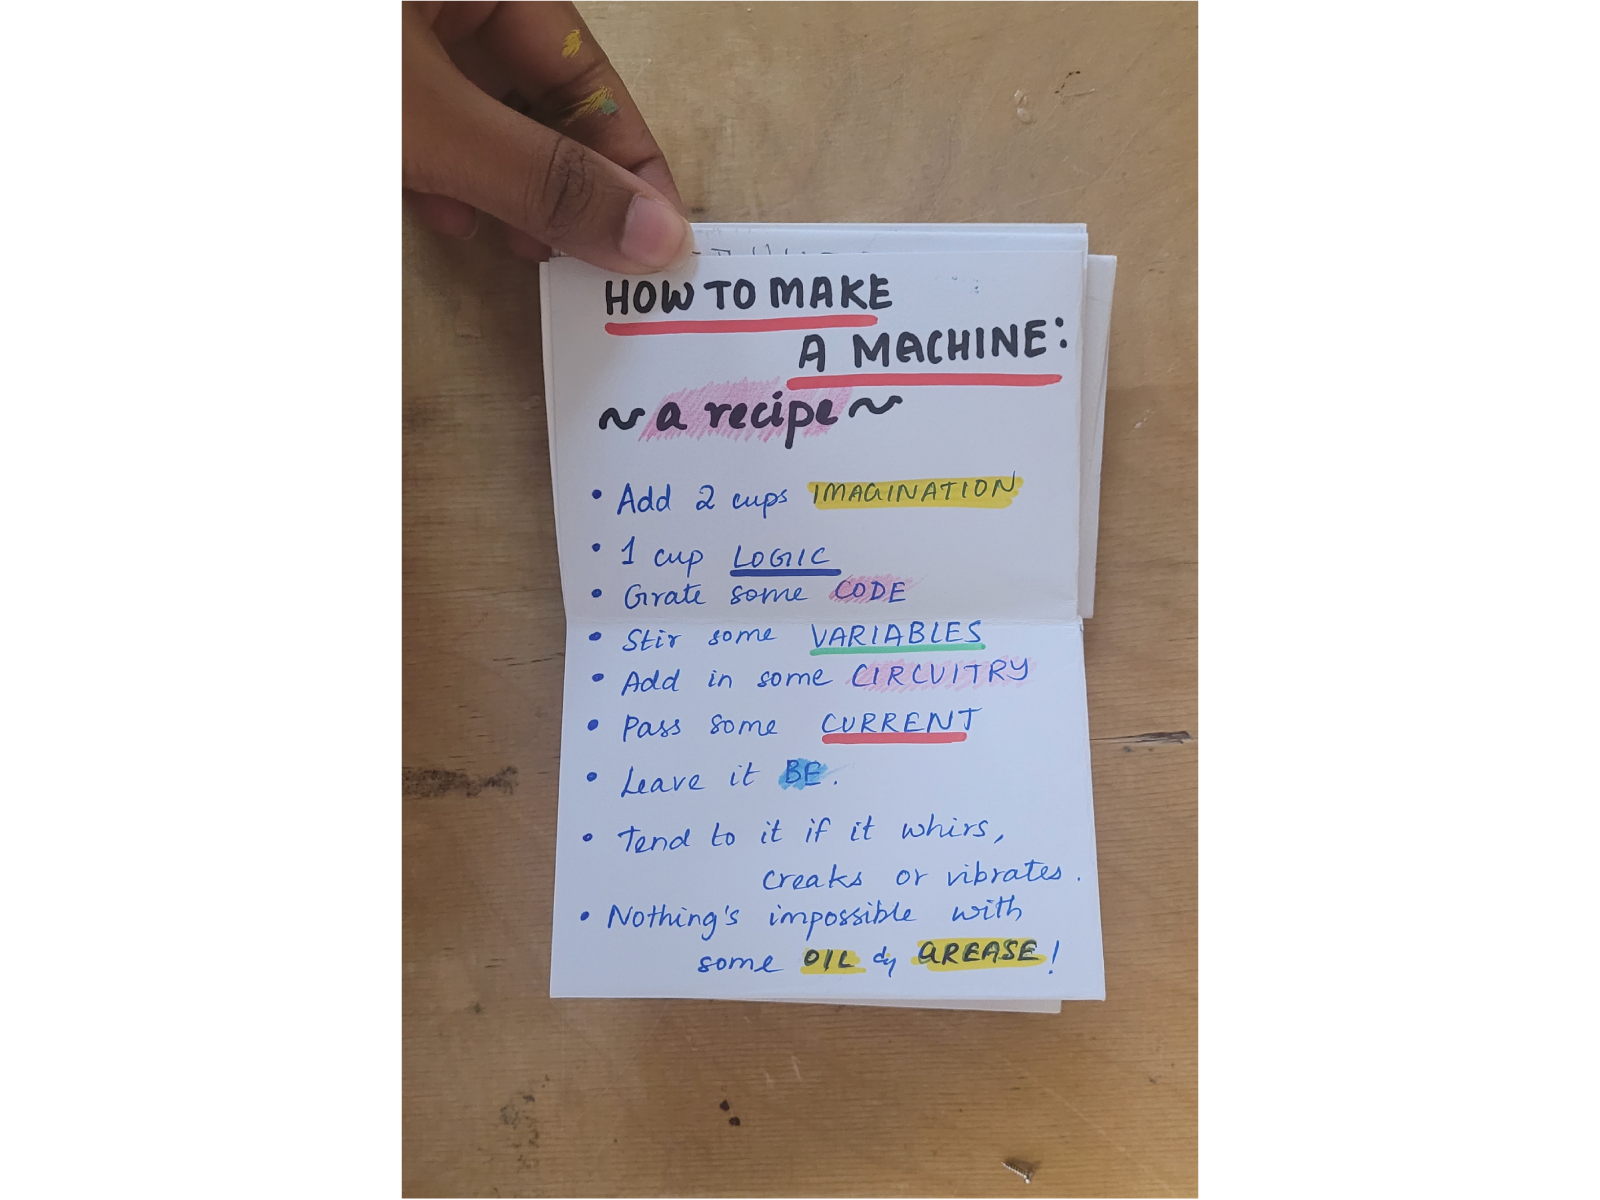 HOW TO MAKE
A MACHINE:
~ a recipe ~
• Add 2 cups IMAGINATION
• 1 cup LOGIC
• Grate some CODE
• Stir some VARIABLES
• Add in some CIRCUITRY
• Pass some CURRENT
• Leave it BE.
• Tend to it if it whirs,
creaks or vibrates.
• Nothing's impossible with
some OIL & GREASE!